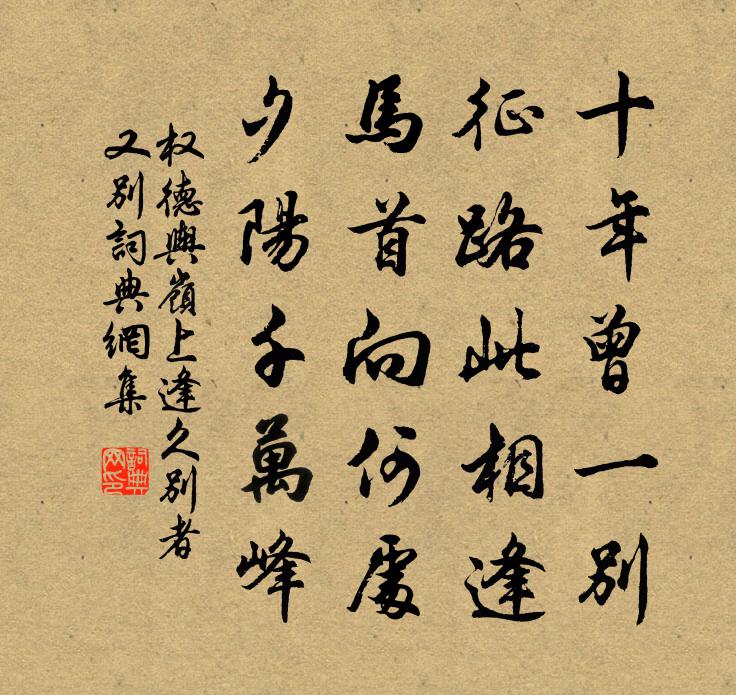 十年曾一別
征路此相逢
馬首向何處
夕陽千萬峰
权德輿嶺上逢久别者
又別詞典網集
詞典
网印